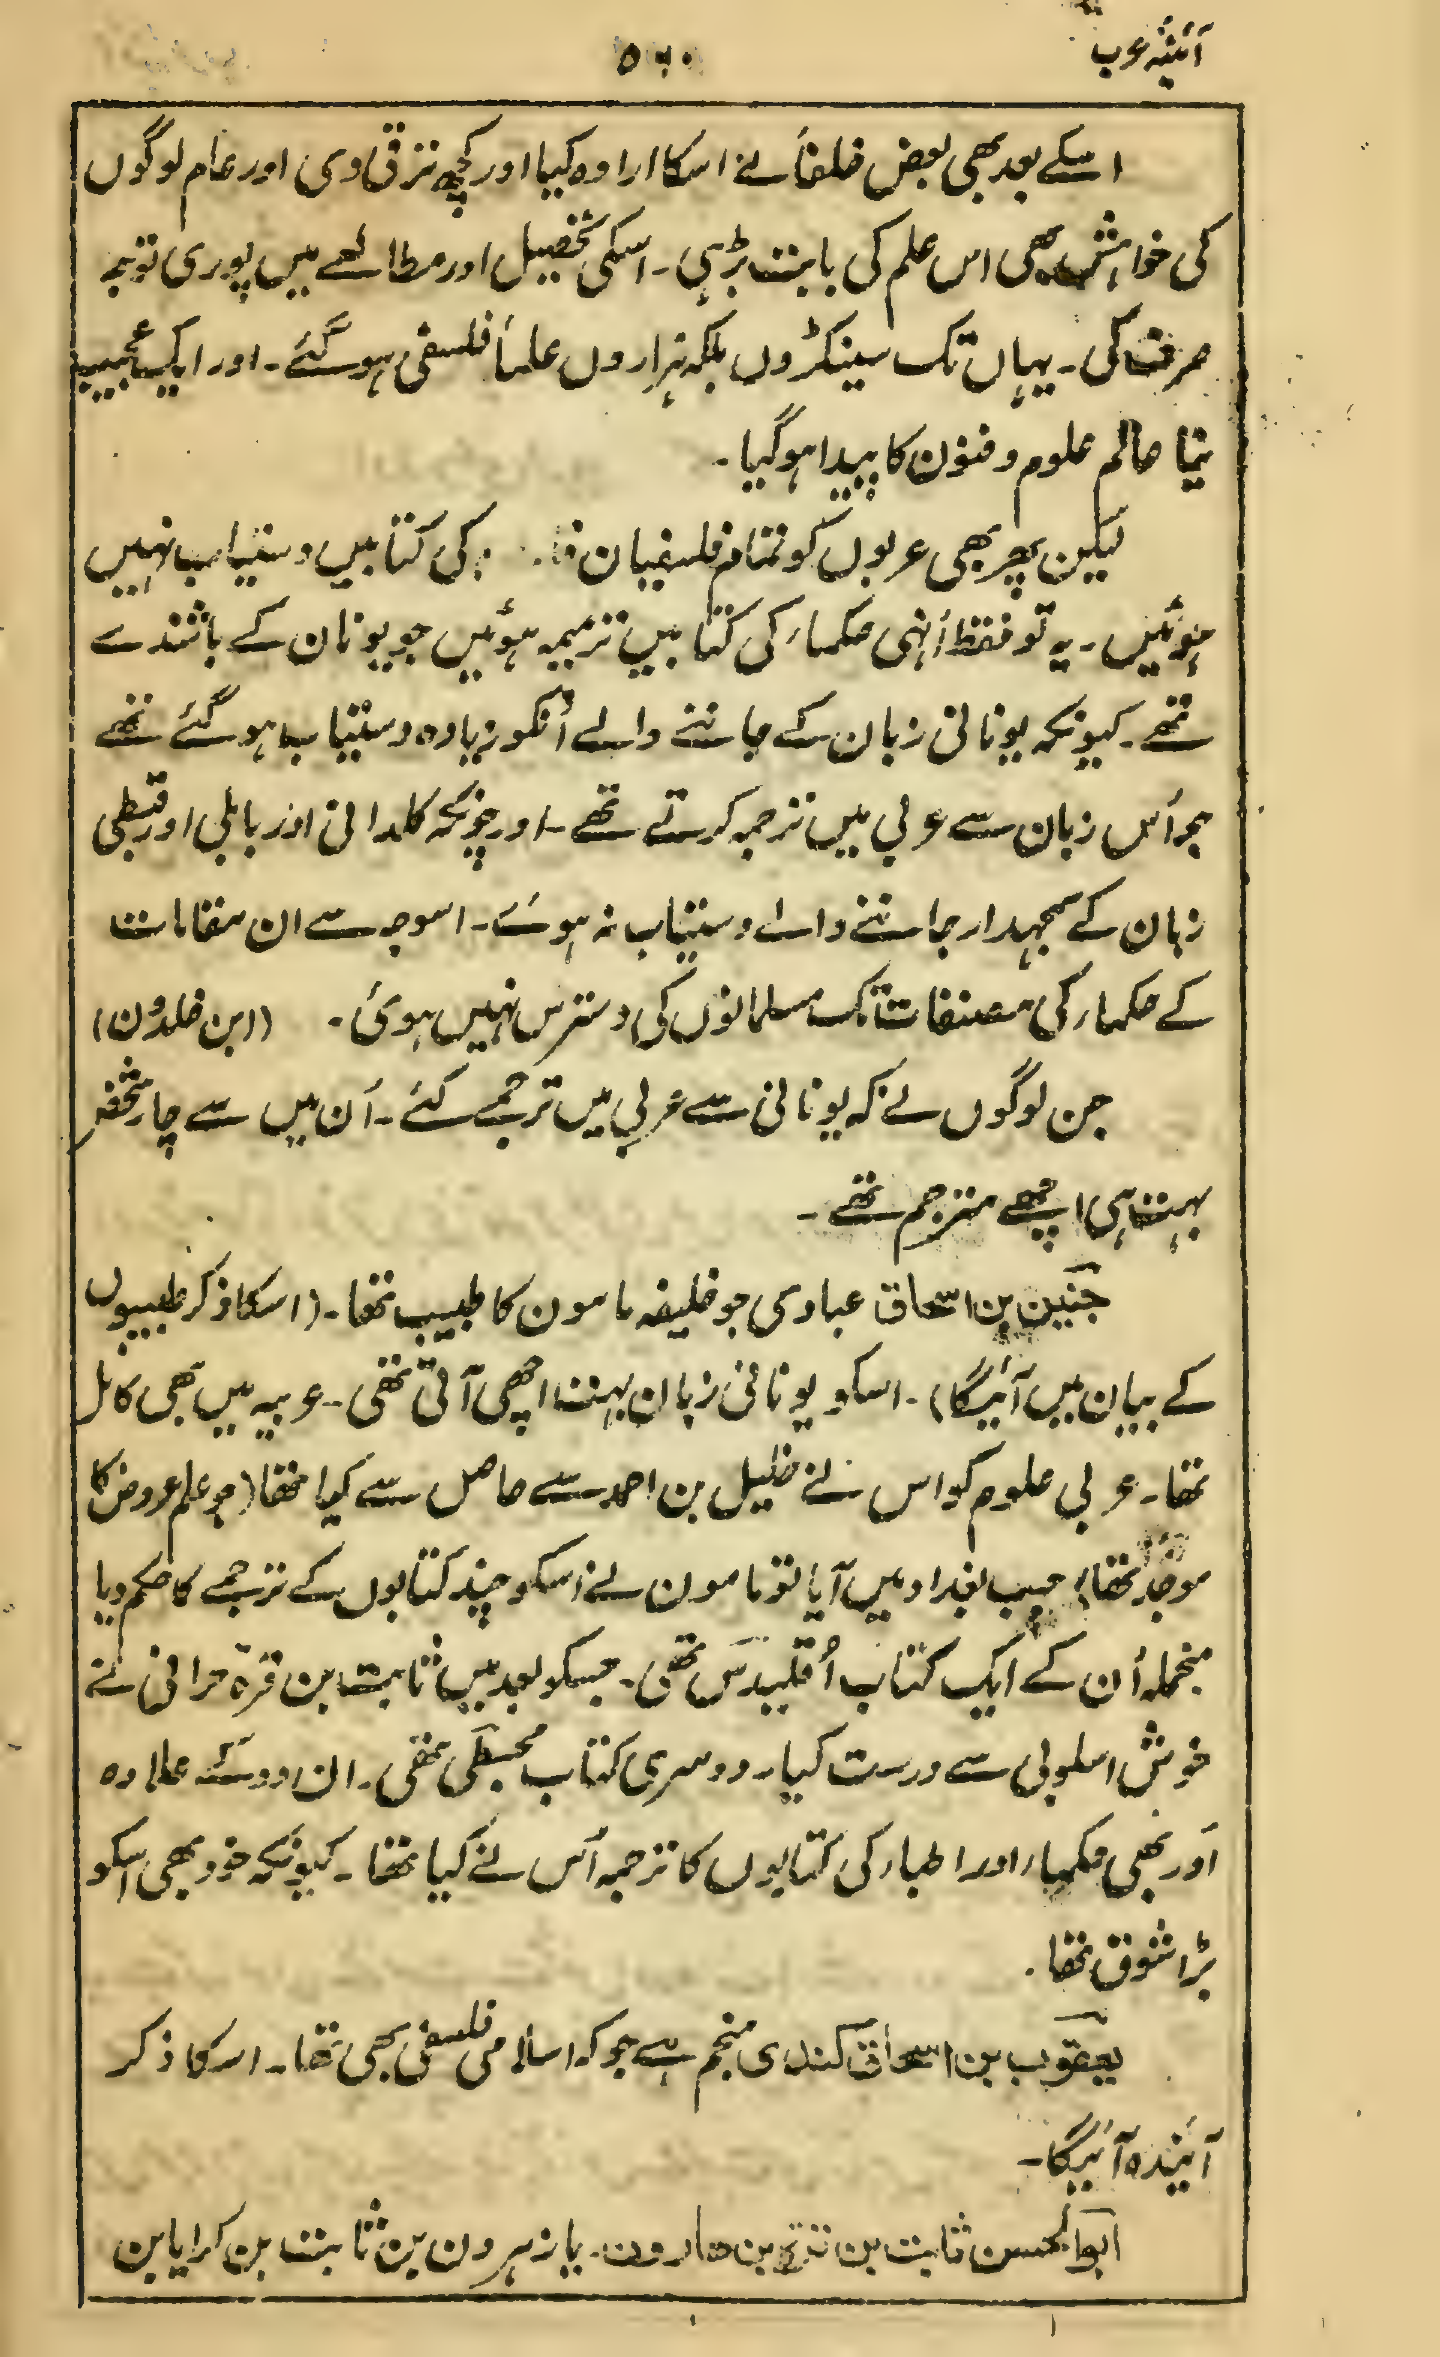 آئینۂ عرب
۵۶۰
اسکے بعد بھی بعض خلفأ نے اسکا ارادہ کیا اور کچھ ترقی دی اور عام لوگوں
کی خواہش بھی اس علم کی بابت بڑہی۔ اسکی تحصیل اور مطالعے میں پوری توجہ
صرف کی۔ یہاں تک سینکڑوں بلکہ ہزاروں علمأ فلسفی ہو گئے۔ اور ایک عجیب
نیا عالم علوم و فنون کا پیدا ہو گیا۔
لیکن پھر بھی عربوں کو تمام فلسفیان کی کتابیں دستیاب نہیں
ہوئیں۔ یہ تو فقط اُنہی حکماء کی کتابیں ترجمہ ہوئیں جو یونان کے باشندے
تھے۔ کیونکہ یونانی زبان کے جاننے والے اُنکو زیادہ دستیاب ہو گئے تھے
جو اُس زبان سے عربی میں ترجمہ کرتے تھے۔ اور چونکہ کلدانی اور بابلی اور قبطی
زبان کے سمجھدار جاننے والے دستیاب نہ ہوئے۔ اسوجہ سے ان مقامات
کے حکماء کی مصنفات تک مسلمانوں کی دسترس نہیں ہوئی۔ (ابن خلدون)
جن لوگوں نے کہ یونانی سے عربی میں ترجمے کئے۔ اُن میں سے چار شخص
بہت ہی اچھے مترجم تھے۔
حنین بن اسحاق عبادی جو خلیفہ مامون کا طبیب تھا۔ (اسکا ذکر طبیبوں
کے بیان میں آئیگا)۔ اسکو یونانی زبان بہت اچھی آتی تھی۔ عربیہ میں بھی کامل
تھا۔ عربی علوم کو اس نے خلیل بن احمد سے حاصل سے کیا تھا (جو علم عروض کا
موجد تھا) جب بغداد میں آیا تو مامون نے اسکو چند کتابوں کے ترجمے کا حکم دیا
منجملہ اُن کے ایک کتاب اُقلیدس تھی۔ جسکو بعد میں ثابت بن قرۃ حرانی نے
خوش اسلوبی سے درست کیا۔ دوسری کتاب مجسطی تھی۔ ان دو کے علاوہ
اَور بھی حکماء اور اطباء کی کتابوں کا ترجمہ اُس نے کیا تھا۔ کیونکہ خود بھی اسکو
بڑا شوق تھا۔
یعقوب بن اسحاق کندی منجم ہے جو کہ اسلامی فلسفی بھی تھا۔ اسکا ذکر
آئیندہ آئیگا۔
ابو الحسن ثابت بن قرۃ بن ہارون۔ یا زہرون بن ثابت بن کرایا بن